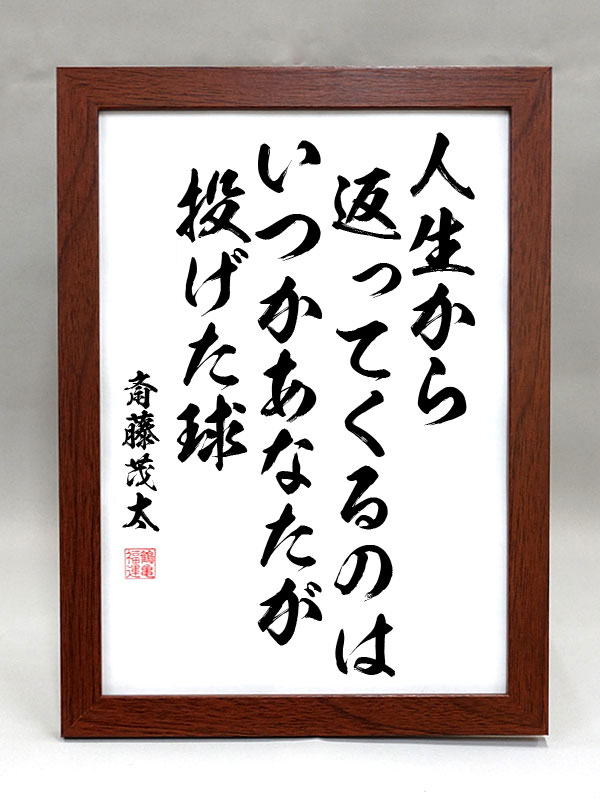 人生から
返ってくるのは
いつかあなたが
投げた球
斎藤茂太
鶴亀
福運